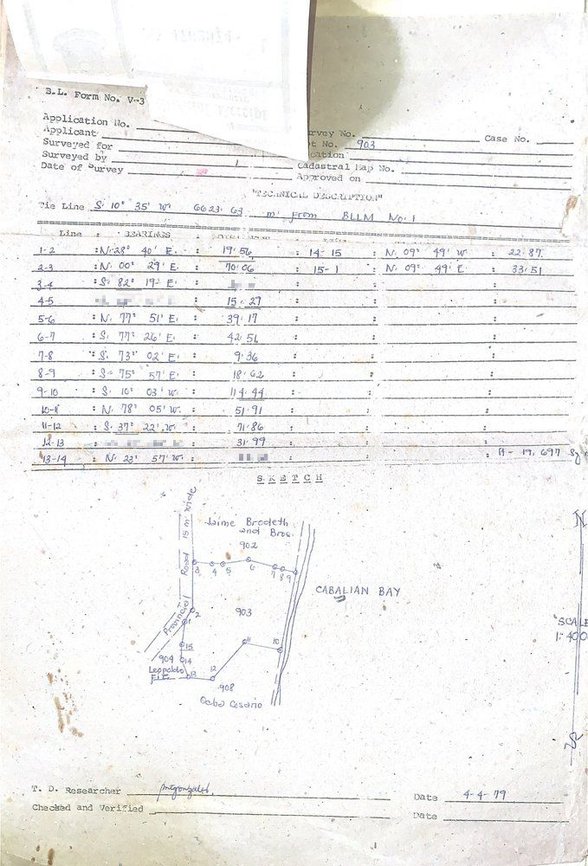 B.L. Form No. V-3
Application No.
Applicant
Surveyed for
Surveyed by
Date of Survey
rvey No. Case No.
ot No. 903
cation
Cadastral Map No.
Approved on
"TECHNICAL DESCRIPTION"
Tie Line S. 10° 35' W. 6623.63 m. From BLLM No. 1
Line : BEARINGS
1-2 : N. 28° 40' E. 19.56 : 14-15 : N. 09° 49' W : 22.87
2-3 : N. 00° 29' E. 70.06 : 15-1 : N. 09° 49' E. : 33.51
3-4 : S. 82° 19' E.
4-5 15.27
5-6 : N. 77° 51' E. 39.17
6-7 : S. 77° 26' E. 42.56
7-8 : S. 73° 02' E. 9.36
8-9 : S. 75° 57' E. 18.62
9-10 : S. 10° 03' W. 114.44
: N. 78° 05' W. 51.91
11-12 : S. 37° 22' W. 71.86
12-13 31.99
13-14 : N. 23° 57' W. A- 19,697
SKETCH
Provincial Road 15 m. wide
Jaime Bradeth
and Bros.
902
3 4 5 6 7 8 9
CABALIAN BAY
2
1
903
15
11 10
904 14
Leopoldo
13 12
908
Cabo Cesario
N
SCALE
1:400
S
T. D. Researcher Date 4-4-79
Checked and Verified Date